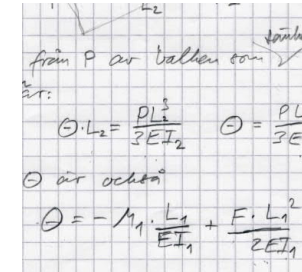 L₂
från P av balken som
är:
Θ·L₂ = PL₂³/3EI₂ Θ = PL/3E
Θ är också
Θ = - M₁ · L₁/EI₁ + F·L₁²/2EI₁